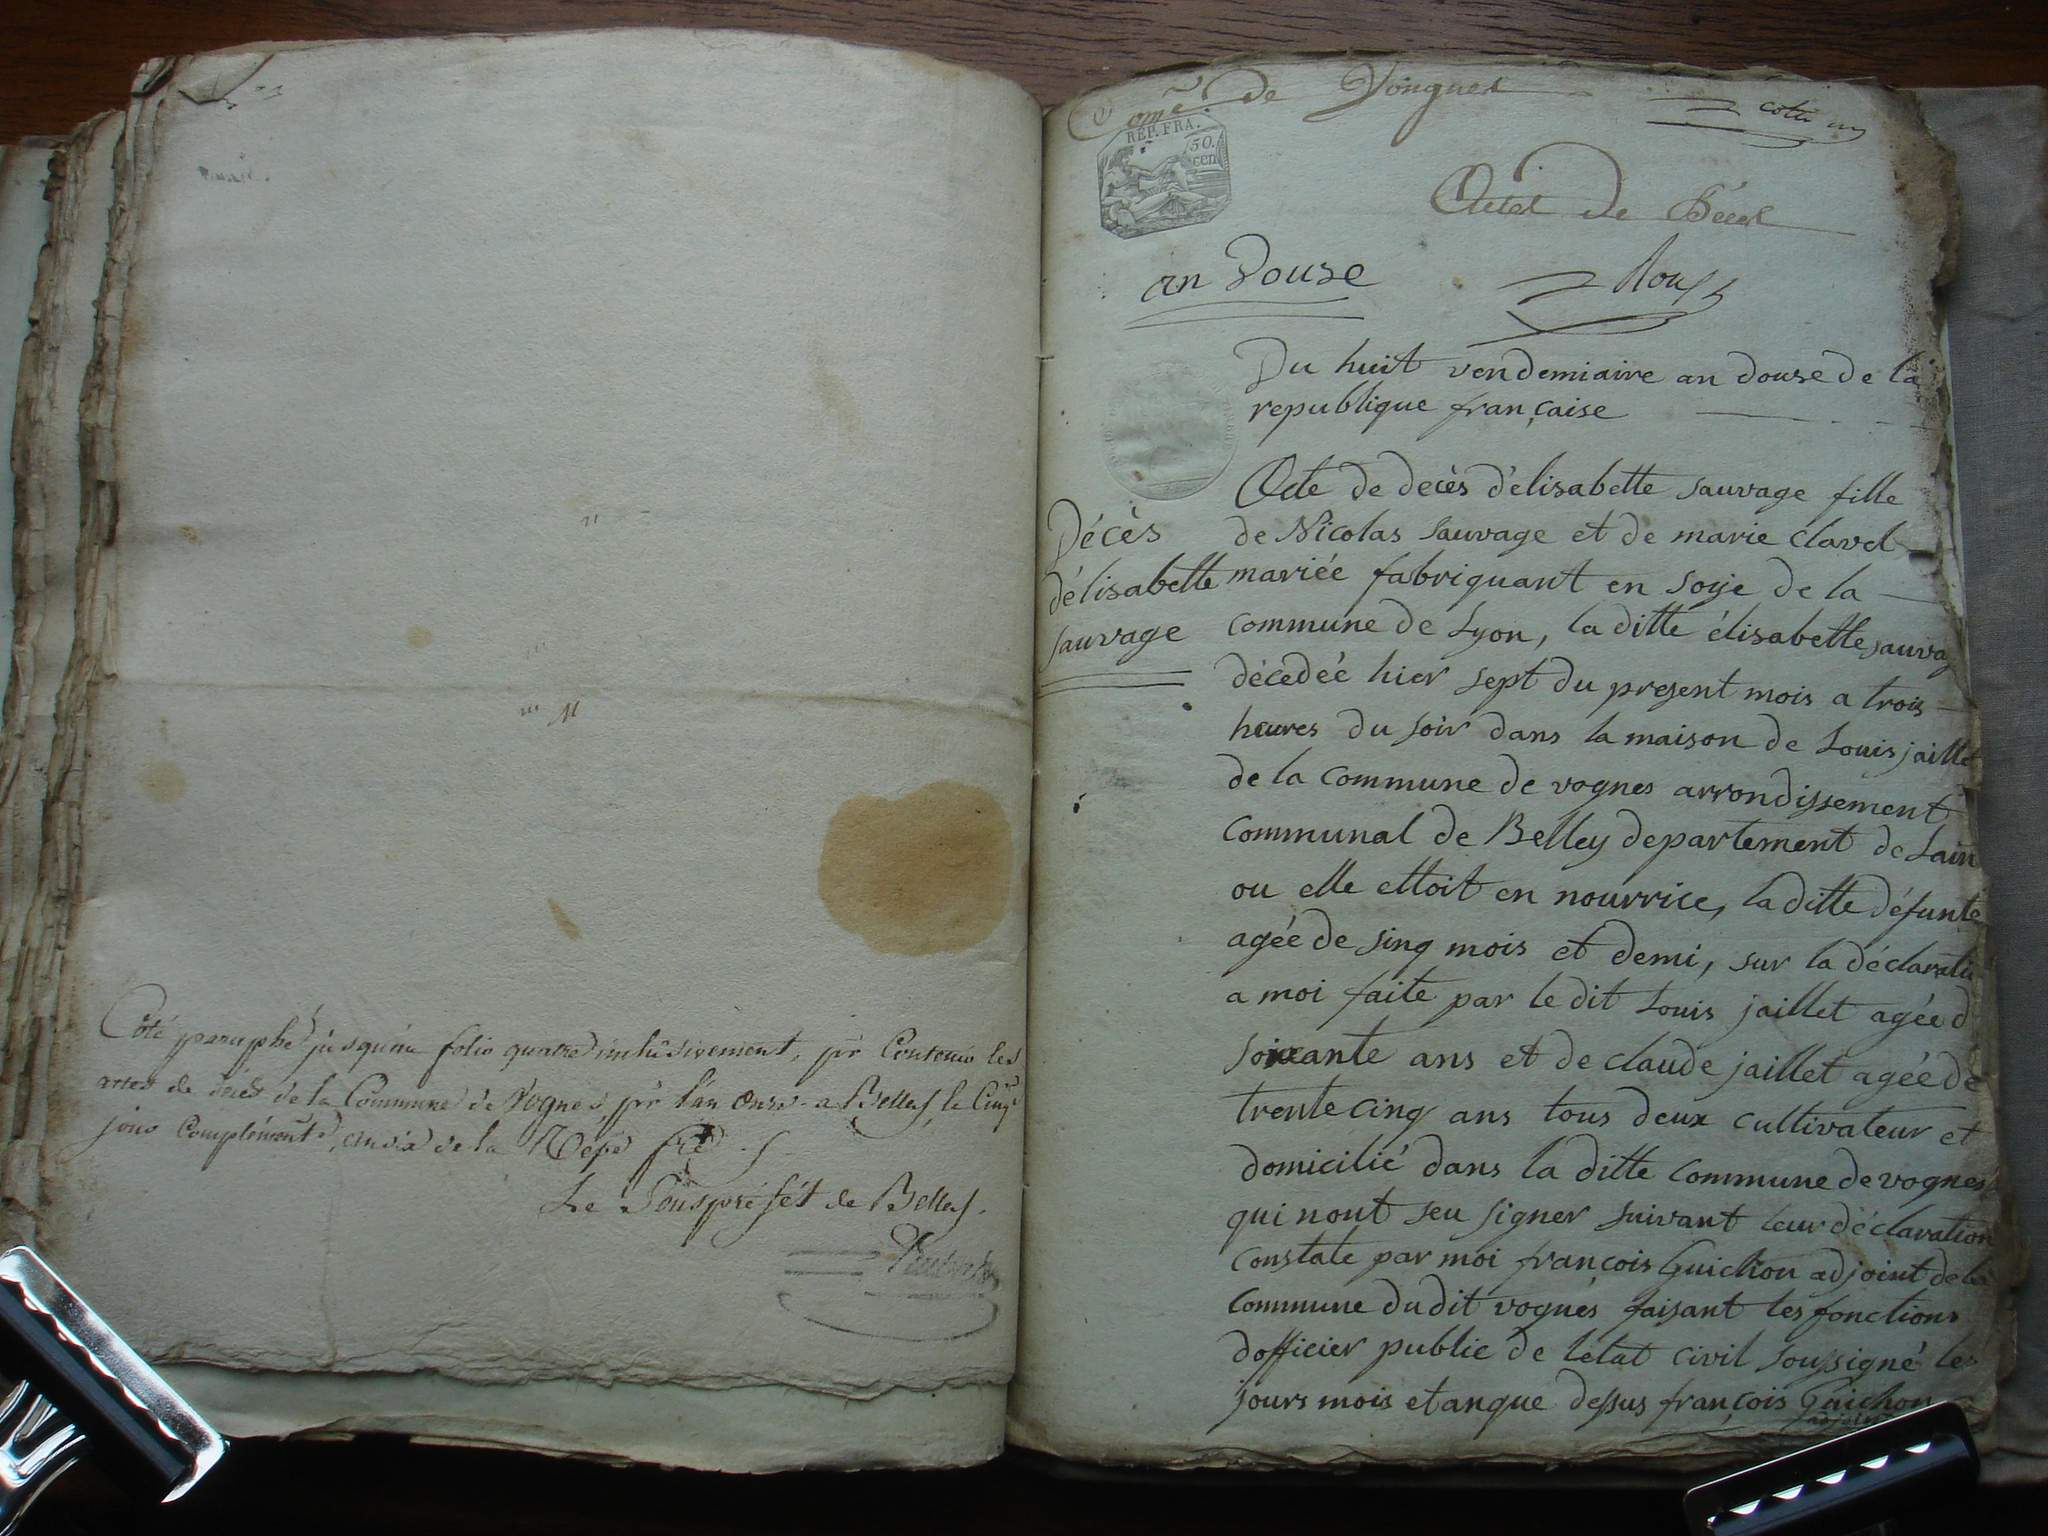 Coté paraphé jusqu'au folio quatre inclusivement, pr Contenir les
actes de décès de la Commune de Vognes, pr l'an onze a Belley le Cinqe
jour Complément. an dix de la Rép. frse
Le Souspréfét de Belley.
Come. de Vongnes
cotté un
RÉP. FRA.
50.
cen
Actes de Décès
an Douse
Du huit vendemiaire an douse de la
republique française
Décès
d'élisabette
sauvage
Acte de decès d'élisabette sauvage fille
de Nicolas sauvage et de marie clavel
mariée fabriquant en soye de la
commune de Lyon, la ditte élisabette sauvag
décedéé hier sept du present mois a trois
heures du soir dans la maison de Louis jaillet
de la commune de vognes arrondissement
communal de Belley departement de Lain
ou elle ettoit en nourrice, la ditte défunte
agée de sinq mois et demi, sur la déclaratio
a moi faite par le dit Louis jaillet agée d
soixante ans et de claude jaillet agée de
trente cinq ans tous deux cultivateur et
domicilié dans la ditte commune de vognes
qui nont seu signer suivant leur déclaration
constate par moi françois Guichon adjoint de la
commune dudit vognes faisant les fonctions
dofficier public de letat civil soussigné les
jours mois et an que dessus françois Guichon
adjoint